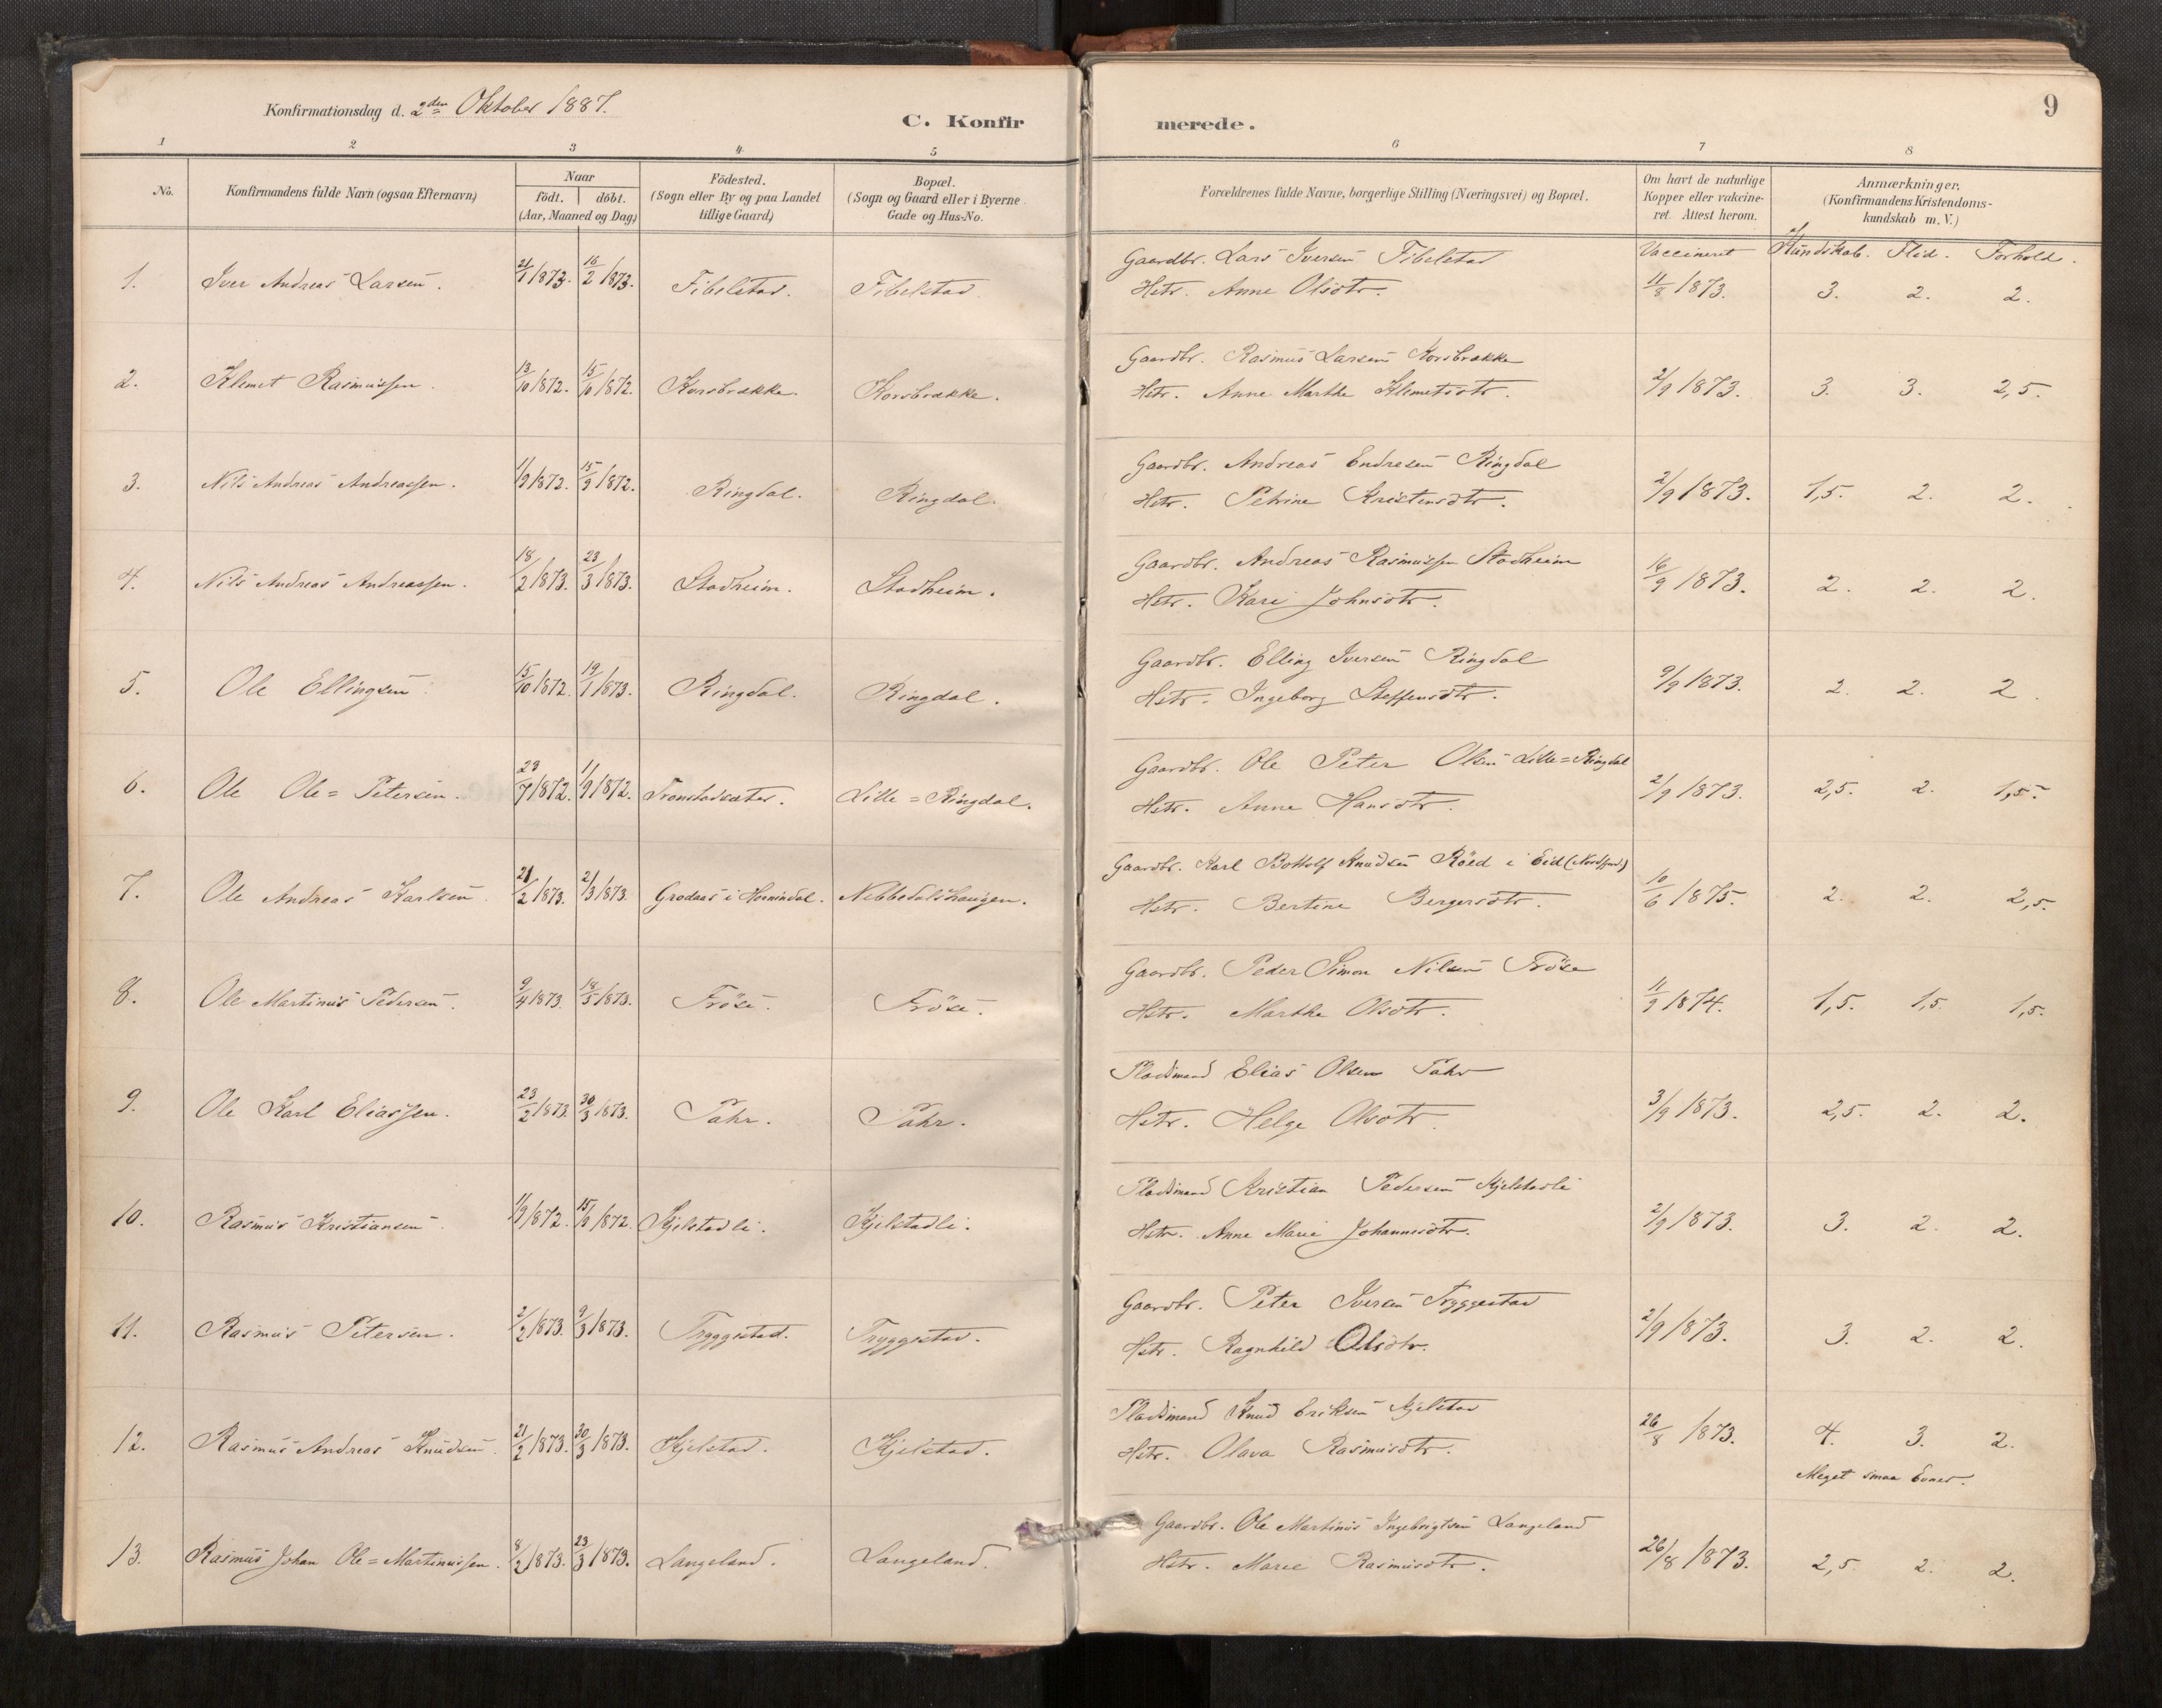 Konfirmationsdag d. 2den Oktober 1887.
C. Konfirmerede.
9
1 2 3 4 5 6 7 8
No. Konfirmandens fulde Navn (ogsaa Efternavn) Naar födt. döbt. (Aar, Maaned og Dag) Födested. (Sogn eller By og paa Landet tillige Gaard) Bopæl. (Sogn og Gaard eller i Byerne Gade og Hus-No. Forældrenes fulde Navne, borgerlige Stilling (Næringsvei) og Bopæl. Om havt de naturlige Kopper eller vakcineret. Attest herom. Anmærkninger. (Konfirmandens Kristendomskundskab m. V.)
Vaccineret Kundskab. Flid. Forhold.
1. Iver Andreas Larsen. 21/1 1873. 16/2 1873. Fibelstad. Fibelstad. Gaardbr. Lars Iversen Fibelstad
Hstr. Anne Olsdtr. 11/8 1873. 3. 2. 2.
2. Klemet Rasmussen. 13/10 1872. 15/10 1872. Korsbrække. Korsbrække. Gaardbr. Rasmus Larsen Korsbrække
Hstr. Anne Marthe Klemetsdtr. 2/9 1873. 3. 3. 2,5.
3. Nils Andreas Andreassen. 1/9 1872. 15/9 1872. Ringdal. Ringdal. Gaardbr. Andreas Endresen Ringdal
Hstr. Petrine Kristensdtr. 2/9 1873. 1,5. 2. 2.
4. Nils Andreas Andreassen. 18/2 1873. 23/3 1873. Stadheim. Stadheim. Gaardbr. Andreas Rasmussen Stadheim
Hstr. Kari Johnsdtr. 16/9 1873. 2. 2. 2.
5. Ole Ellingsen. 15/10 1872. 19/1 1873. Ringdal. Ringdal. Gaardbr. Elling Iversen Ringdal
Hstr. Ingeborg Steffensdtr. 9/9 1873. 2. 2. 2.
6. Ole Ole=Petersen. 23/7 1872. 1/9 1872. Tronstadsæter. Lille=Ringdal. Gaardbr. Ole Peter Olsen Lille=Ringdal
Hstr. Anne Hansdtr. 2/9 1873. 2,5. 2. 1,5.
7. Ole Andreas Karlsen. 21/2 1873. 2/3 1873. Grodaas i Hornindal. Nebbedalshaugen. Gaardbr. Karl Bottolf Knudsen Röed i Eid (Nordfjord)
Hstr. Bertine Bergersdtr. 10/6 1875. 2. 2. 2,5.
8. Ole Martinus Pedersen. 9/4 1873. 18/5 1873. Fröse. Fröse. Gaardbr. Peder Simon Nilsen Fröse
Hstr. Marthe Olsdtr. 11/9 1874. 1,5. 1,5. 1,5.
9. Ole Karl Eliassen. 23/2 1873. 30/3 1873. Tahr. Tahr. Pladsmand Elias Olsen Tahr
Hstr. Helge Olsdtr. 3/9 1873. 2,5. 2. 2.
10. Rasmus Kristiansen. 1/9 1872. 15/9 1872. Kjelstadli. Kjelstadli. Pladsmand Kristian Pedersen Kjelstadli
Hstr. Anne Marie Johannesdtr. 2/9 1873. 3. 2. 2.
11. Rasmus Petersen. 2/2 1873. 9/3 1873. Tryggestad. Tryggestad. Gaardbr. Peter Iversen Tryggestad
Hstr. Ragnhild Olsdtr. 2/9 1873. 3. 2. 2.
12. Rasmus Andreas Knudsen. 21/2 1873. 30/3 1873. Kjelstad. Kjelstad. Pladsmand Knud Eriksen Kjelstad
Hstr. Olava Rasmusdtr. 26/8 1873. 4. 3. 2.
Meget smaa Evner.
13. Rasmus Johan Ole=Martinussen. 8/2 1873. 23/3 1873. Langeland. Langeland. Gaardbr. Ole Martinus Ingebrigtsen Langeland
Hstr. Marie Rasmusdtr. 26/8 1873. 2,5. 2. 2.